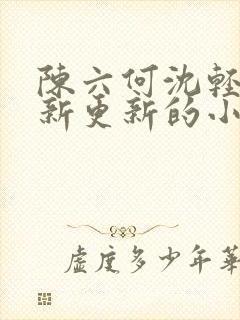 陳六何沈輕
新更新的小
虛度多少年華